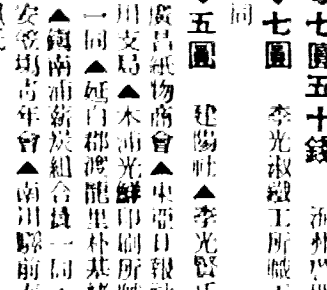 七圓五十錢
七圓 李光淑鐵工所職
同
五圓 建陽社▲李光賢
廣昌紙物商會▲東亞日報
川支局▲木浦光鮮印刷所職
一同▲延白郡渡龍里朴基
▲鎭南浦薪炭組合員一同▲
安 場靑年會▲南川驛前